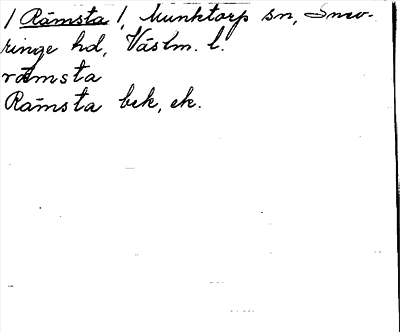 / Råmsta /, Munktorp sn, Snev-
ringe hd, Västm. l.
råmsta
Råmsta bek, ek.